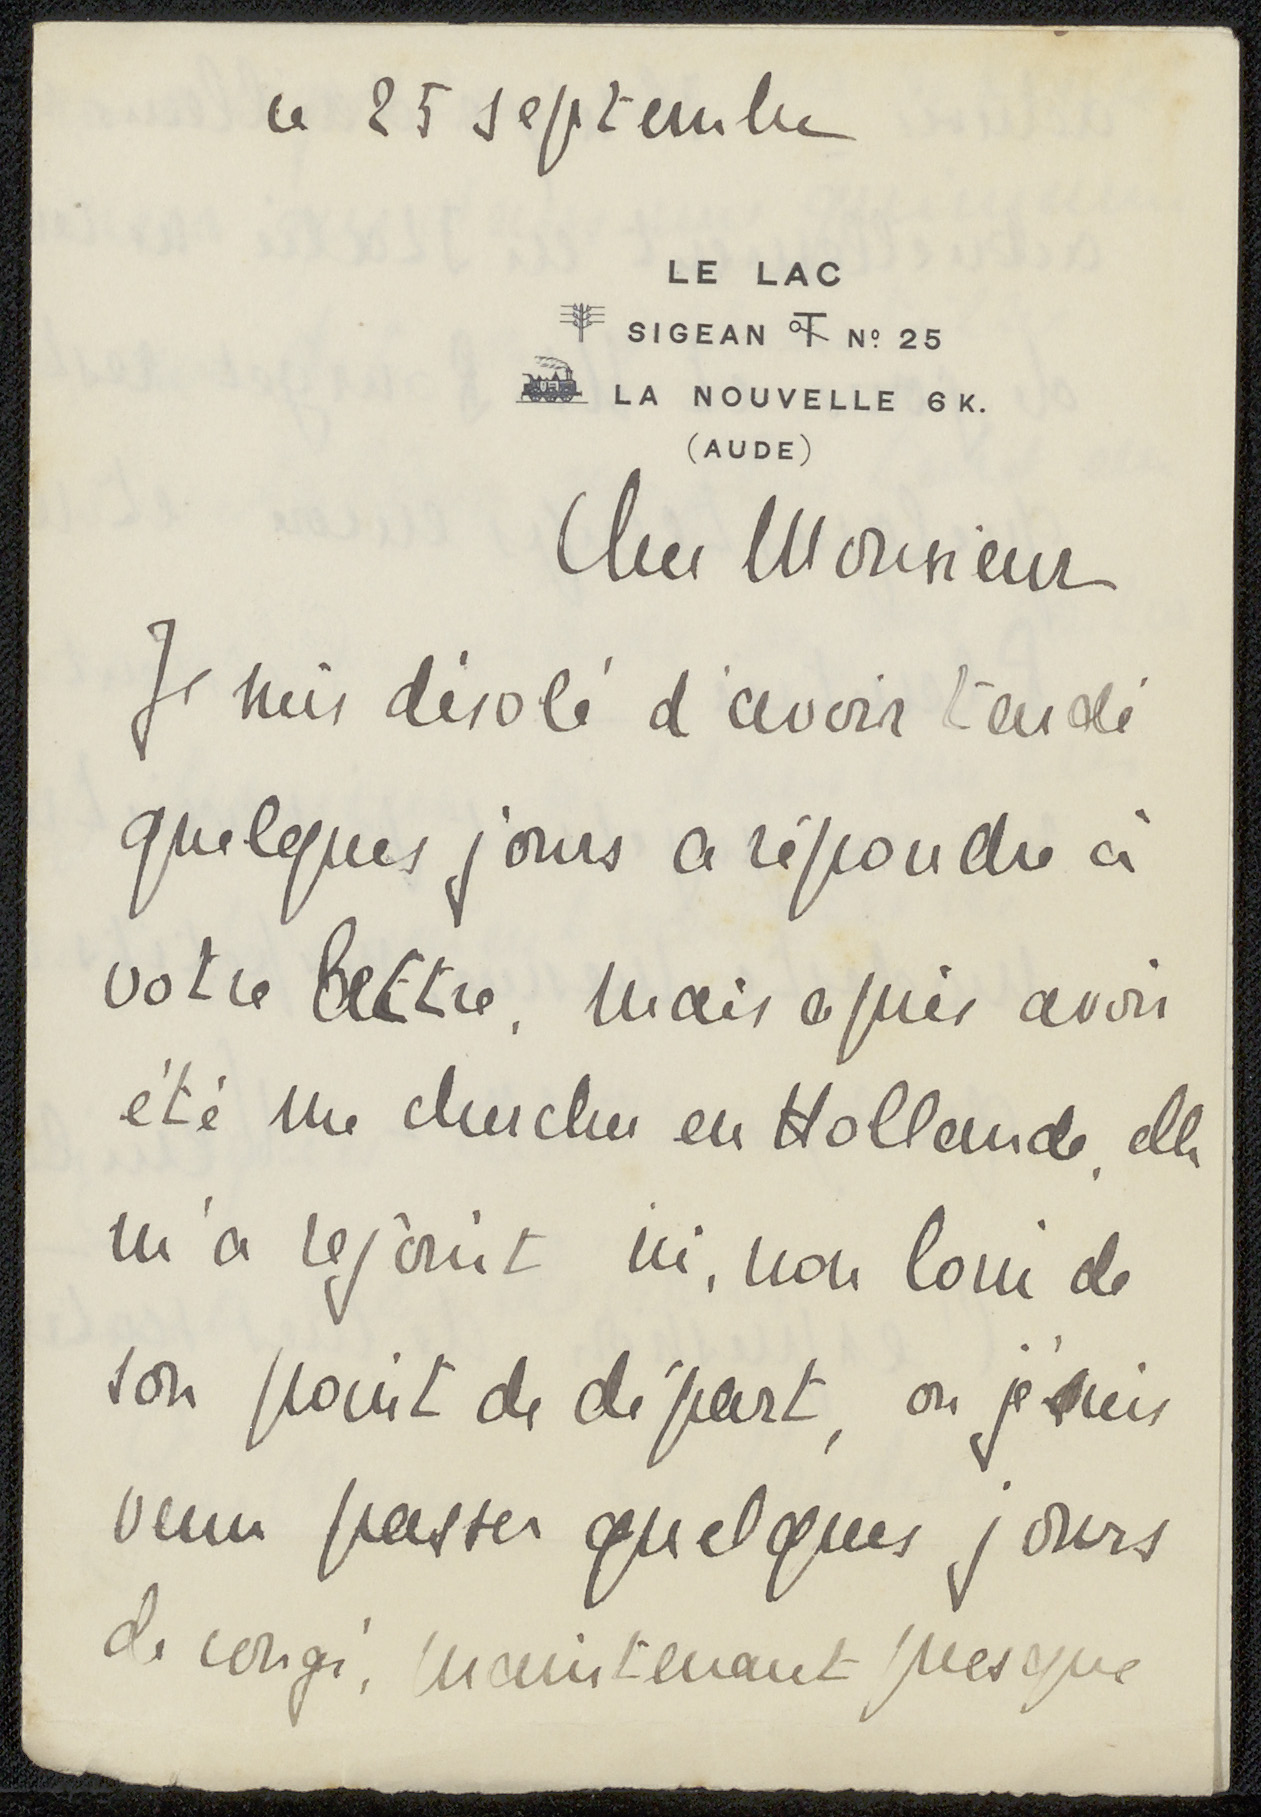 ce 25 septembre
LE LAC
SIGEAN N° 25
LA NOUVELLE 6 K.
(AUDE)
Cher Monsieur
Je suis désolé d'avoir tardé
quelques jours a répondre à
votre lettre, mais après avoir
été me chercher en Hollande, elle
m'a rejoint ici, non loin de
son point de départ, ou je suis
venu passer quelques jours
de congé, maintenant presque